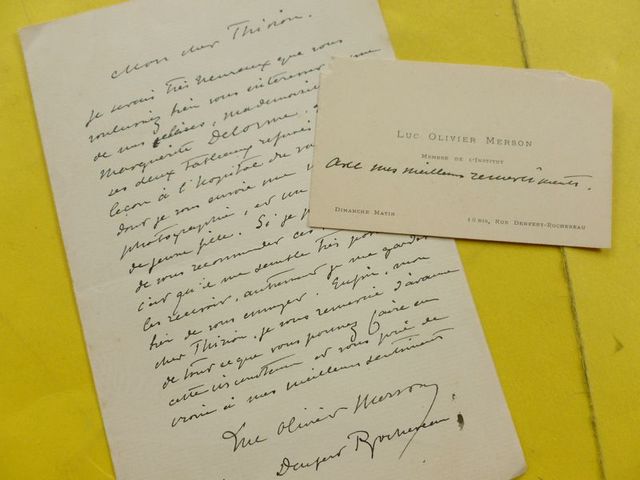 Mon cher Thirion,
Je serais très heureux que vous
voulussiez bien vous intéresser
de mes élèves, mademoiselle
Marguerite Delorme.
ses deux tableaux
leçon à l'hopital de
dont je vous envoie
photographie, et un
de jeune fille. Si je
de vous recommander ces
c'est qu'il me semble très
les recevoir, autrement je me garderais
bien de vous ennuyer. Enfin, mon
cher Thirion, je vous remercie d'avance
de tout ce que vous pourrez faire en
cette circonstance et vous prie de
croire à mes meilleurs sentiments
Luc Olivier Merson
Denfert Rochereau
LUC OLIVIER MERSON
MEMBRE DE L'INSTITUT
avec mes meilleurs remerciments.
DIMANCHE MATIN
BIS, RUE DENFERT-ROCHEREAU